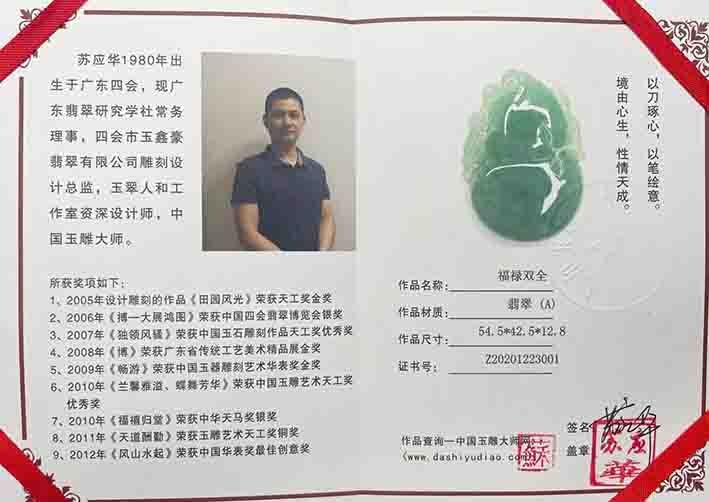 苏应华1980年出
生于广东四会，现广
东翡翠研究学社常务
理事，四会市玉鑫豪
翡翠有限公司雕刻设
计总监，玉翠人和工
作室资深设计师，中
国玉雕大师。
所获奖项如下：
1、2005年设计雕刻的作品《田园风光》荣获天工奖金奖
2、2006年《搏一大展鸿图》荣获中国四会翡翠博览会银奖
3、2007年《独领风骚》荣获中国玉石雕刻作品天工奖优秀奖
4、2008年《博》荣获广东省传统工艺美术精品展金奖
5、2009年《畅游》荣获中国玉器雕刻艺术华表奖金奖
6、2010年《兰馨雅溢、蝶舞芳华》荣获中国玉雕艺术天工奖
优秀奖
7、2010年《福禧归堂》荣获中华天马奖银奖
8、2011年《天道酬勤》荣获玉雕艺术天工奖铜奖
9、2012年《风山水起》荣获中国华表奖最佳创意奖
以刀琢心，以笔绘意。
境由心生，性情天成。
作品名称：福禄双全
作品材质：翡翠 (A)
作品尺寸：54.5*42.5*12.8
证书号：Z20201223001
签名
盖章
苏应
華
作品查询一中国玉雕大师网：
〈www.dashiyudiao.com〉
蘇